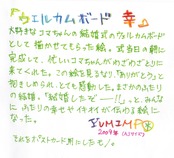 『ウェルカムボード 幸』
大好きなコマちゃんの結婚式のウェルカムボード
として描かせてもらった絵。式当日の朝に
完成して、忙しいコマちゃんがわざわざとりに
来てくれた。この絵を見るなり、「ありがとう」と
抱きしめられ、とても感動した。まさかのふたり
の結婚。「結婚したぞー!!」と、みんな
に、ふたりの幸せオーラが伝わる絵に
なった。
IZUMIMPO
2009年
それをポストカード用にしたモノ。